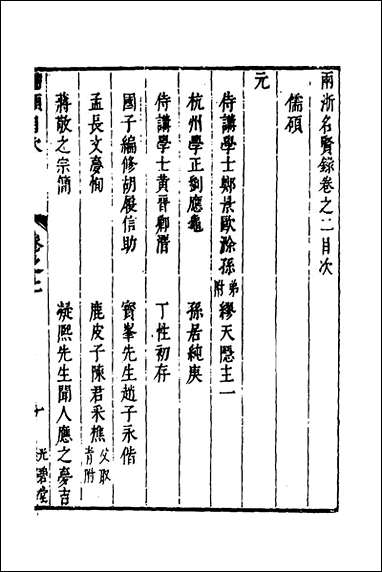 兩浙名賢錄卷之二目次
儒碩
元
侍講學士鄭景歐滁孫弟附
繆天隱主一
杭州學正劉應龜
孫居純庚
侍講學士黃晉卿溍
丁性初存
國子編修胡履信助
寳峯先生趙子永偕
孟長文夢恂
鹿皮子陳君采樵父取青附
蔣敬之宗簡
凝熙先生聞人應之夢吉
碩目次
卷之二
光碧堂